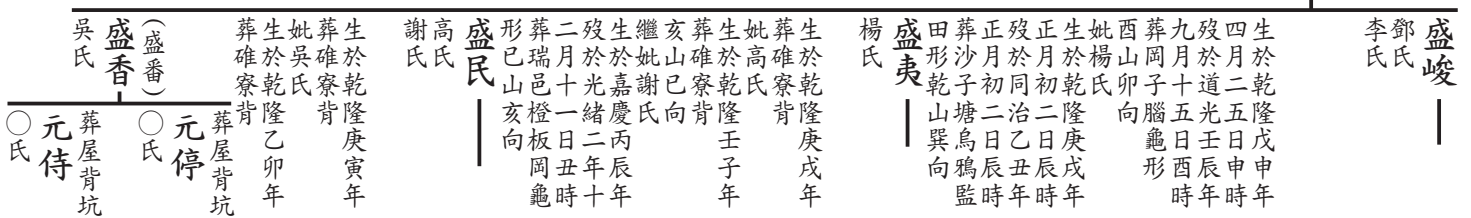 盛峻
鄧氏
李氏
生於乾隆戊申年
四月二五日申時
歿於道光壬辰年
九月十五日酉時
葬岡子腦龜形
酉山卯向
妣楊氏
生於乾隆庚戌年
正月初二日辰時
歿於同治乙丑年
正月初二日辰時
葬沙子塘烏鴉監
田形乾山巽向
盛夷
楊氏
生於乾隆庚戌年
葬碓寮背
妣高氏
生於乾隆壬子年
葬碓寮背
亥山已向
繼妣謝氏
生於嘉慶丙辰年
歿於光緒二年十
二月十一日丑時
葬瑞邑橙板岡龜
形已山亥向
盛民
高氏
謝氏
生於乾隆庚寅年
葬碓寮背
妣吳氏
生於乾隆乙卯年
葬碓寮背
(盛番)
盛香
吳氏
葬屋背坑
元停
〇氏
葬屋背坑
元侍
〇氏